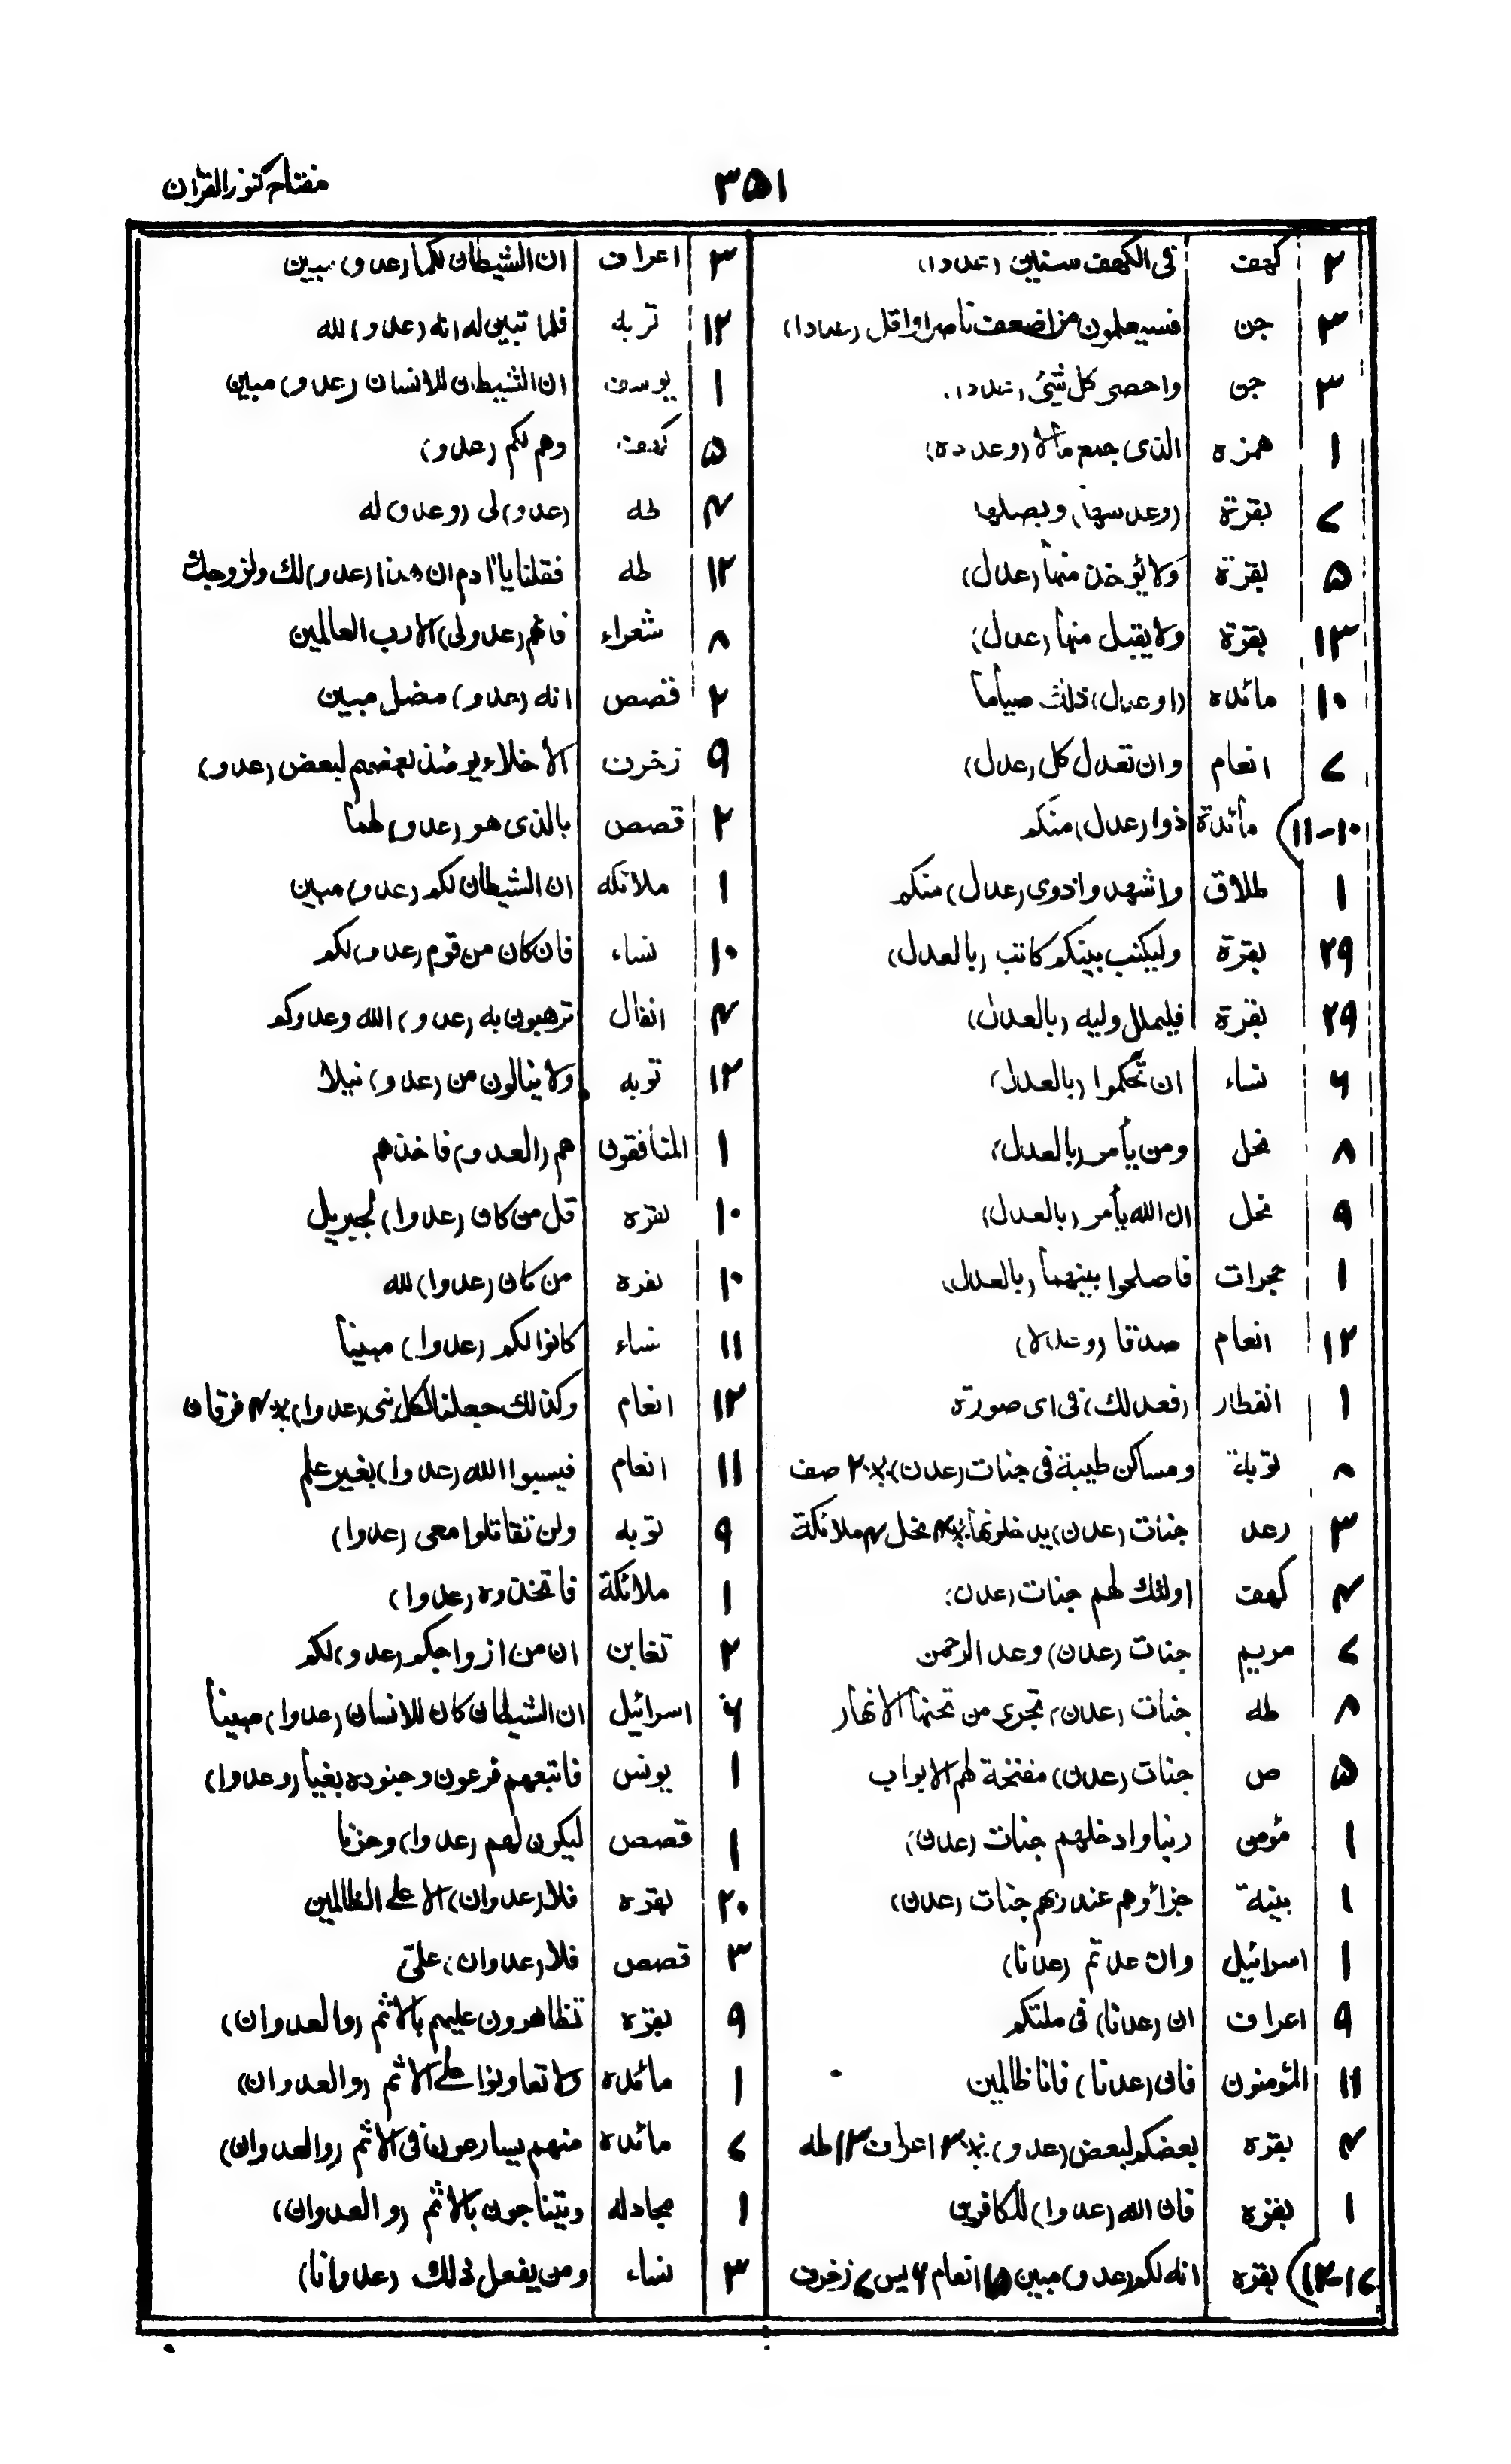 مفتاح کنوز القرآن
٣٥١
٢ کهف فی الکهف سنین (عددا)
٣ جن فسیعلمون من اضعف ناصرا واقل (عددا)
٣ جن واحصی کل شیئ (عددا)
١ همزه الذی جمع مالا (وعدده)
٧ بقرة (وعدسها) وبصلها
٥ بقرة ولا یؤخذ منها (عدل)
١٣ بقرة ولا یقبل منها (عدل)
١٠ مائده (او عدل) ذلک صیاما
٧ انعام وان تعدل کل (عدل)
١٠-١١ مائدة ذوا (عدل) منکم
١ طلاق واشهدوا ذوی (عدل) منکم
٢٩ بقرة ولیکتب بینکم کاتب (بالعدل)
٢٩ بقرة فلیملل ولیه (بالعدل)
٦ نساء ان تحکموا (بالعدل)
٨ نحل ومن یأمر (بالعدل)
٩ نحل ان الله یأمر (بالعدل)
١ حجرات فاصلحوا بینهما (بالعدل)
١٢ انعام صدقا (وعدلا)
١ انفطار (فعدلک) فی ای صورة
٨ توبة ومساکن طیبة فی جنات (عدن) ٢ صف
٣ رعد جنات (عدن) یدخلونها ٤ نحل ٤ ملائکة
٤ کهف اولئک لهم جنات (عدن)
٧ مریم جنات (عدن) وعد الرحمن
٨ طه جنات (عدن) تجری من تحتها الانهار
٥ ص جنات (عدن) مفتحة لهم الابواب
١ مؤمن ربنا وادخلهم جنات (عدن)
١ بینة جزاؤهم عند ربهم جنات (عدن)
١ اسرائیل وان عدتم (عدنا)
٩ اعراف ان (عدنا) فی ملتکم
١١ المؤمنون فان (عدنا) فانا ظالمین
٤ بقره بعضکم لبعض (عدو) ٣ اعراف ١٣ طه
١ بقره فان الله (عدوا) للکافرین
١٢-١٧ بقره انه لکم (عدو) مبین انعام ٤ یس ٧ زخرف
٣ اعراف ان الشیطان لکما (عدو) مبین
١٢ توبه فلما تبین له انه (عدو) لله
١ یوسف ان الشیطان للانسان (عدو) مبین
٥ کهف وهم لکم (عدو)
٤ طه (عدو) لی (وعدو) له
١٢ طه فقلنا یا ادم ان هذا (عدو) لک ولزوجک
٨ شعراء فانهم (عدو لی) الا رب العالمین
٢ قصص انه (عدو) مضل مبین
٩ زخرف الاخلاء یومئذ بعضهم لبعض (عدو)
٢ قصص بالذی هو (عدو) لهما
١ ملائکه ان الشیطان لکم (عدو) مبین
١٠ نساء فان کان من قوم (عدو) لکم
٤ انفال ترهبون به (عدو) الله وعدوکم
١٢ توبه ولا ینالون من (عدو) نیلا
١ المنافقون هم (العدو) فاحذهم
١٠ بقره قل من کان (عدوا) لجبریل
١٠ بقره من کان (عدوا) لله
١١ نساء کانوا لکم (عدوا) مبینا
١٢ انعام وکذلک جعلنا لکل نبی (عدوا) ٤ فرقان
١١ انعام فیسبوا الله (عدوا) بغیر علم
٩ توبه ولن تقاتلوا معی (عدوا)
١ ملائکة فاتخذوه (عدوا)
٢ تغابن ان من ازواجکم (عدو) لکم
٦ اسرائیل ان الشیطان کان للانسان (عدوا) مبینا
١ یونس فاتبعهم فرعون وجنوده بغیا (وعدوا)
١ قصص لیکون لهم (عدوا) وحزنا
٢٠ بقره فلا (عدوان) الا علی الظالمین
٣ قصص فلا (عدوان) علیّ
٩ بقره تظاهرون علیهم بالاثم (والعدوان)
١ مائده ولا تعاونوا علی الاثم (والعدوان)
٧ مائده منهم یسارعون فی الاثم (والعدوان)
١ مجادله ویتناجون بالاثم (والعدوان)
٣ نساء ومن یفعل ذلک (عدوانا)